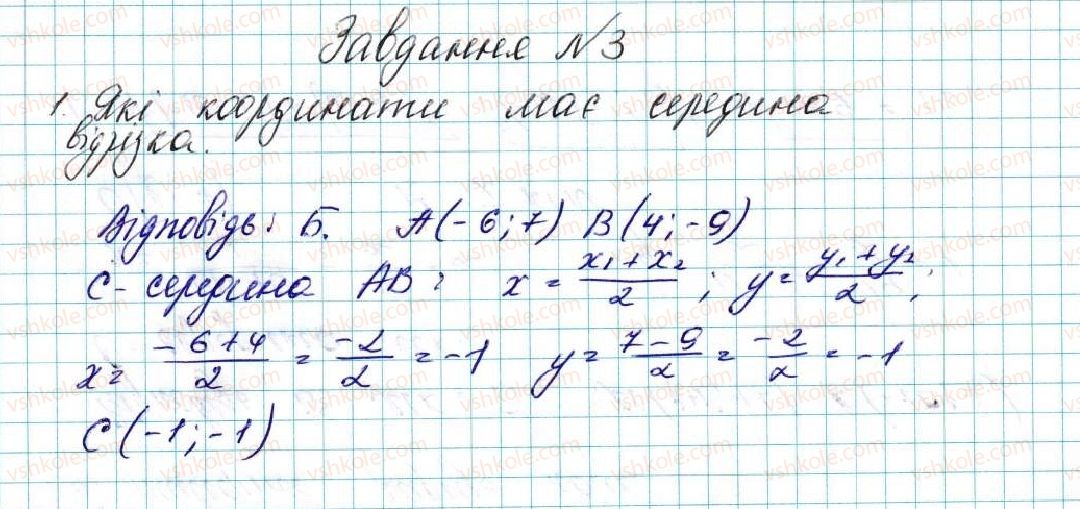 Завдання №3
1. Які координати має середина
відрізка.
Відповідь: Б. A(-6;7) B(4;-9)
C- середина AB: x = \frac{x₁+x₂}{2}; y = \frac{y₁+y₂}{2};
x = \frac{-6+4}{2} = \frac{-2}{2} = -1 y = \frac{7-9}{2} = \frac{-2}{2} = -1
C(-1;-1)